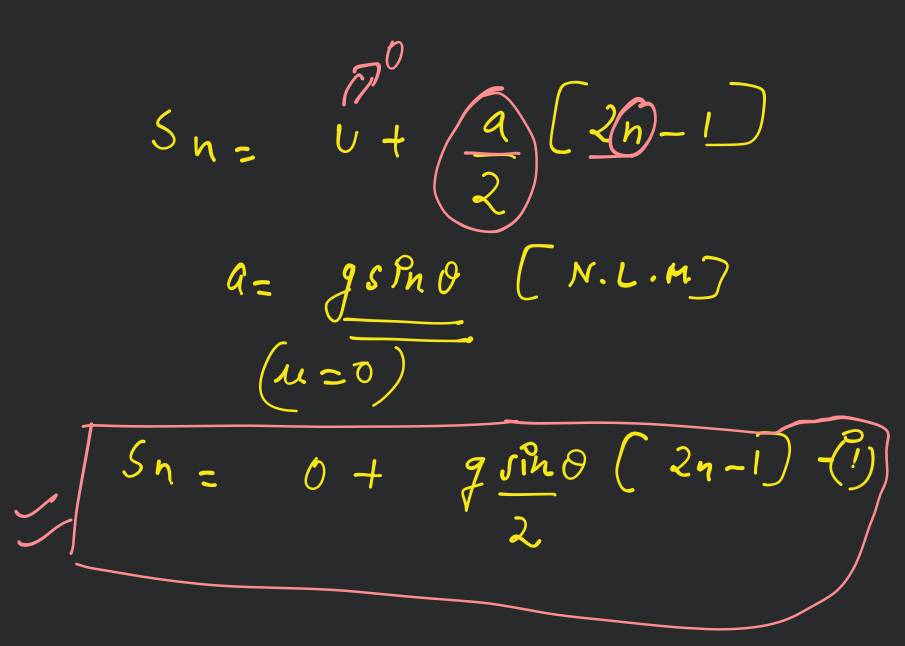 0
Sn = u + a/2 [2n-1]
a = gsinθ [N.L.M]
(μ=0)
Sn = 0 + gsinθ/2 [2n-1] -(i)